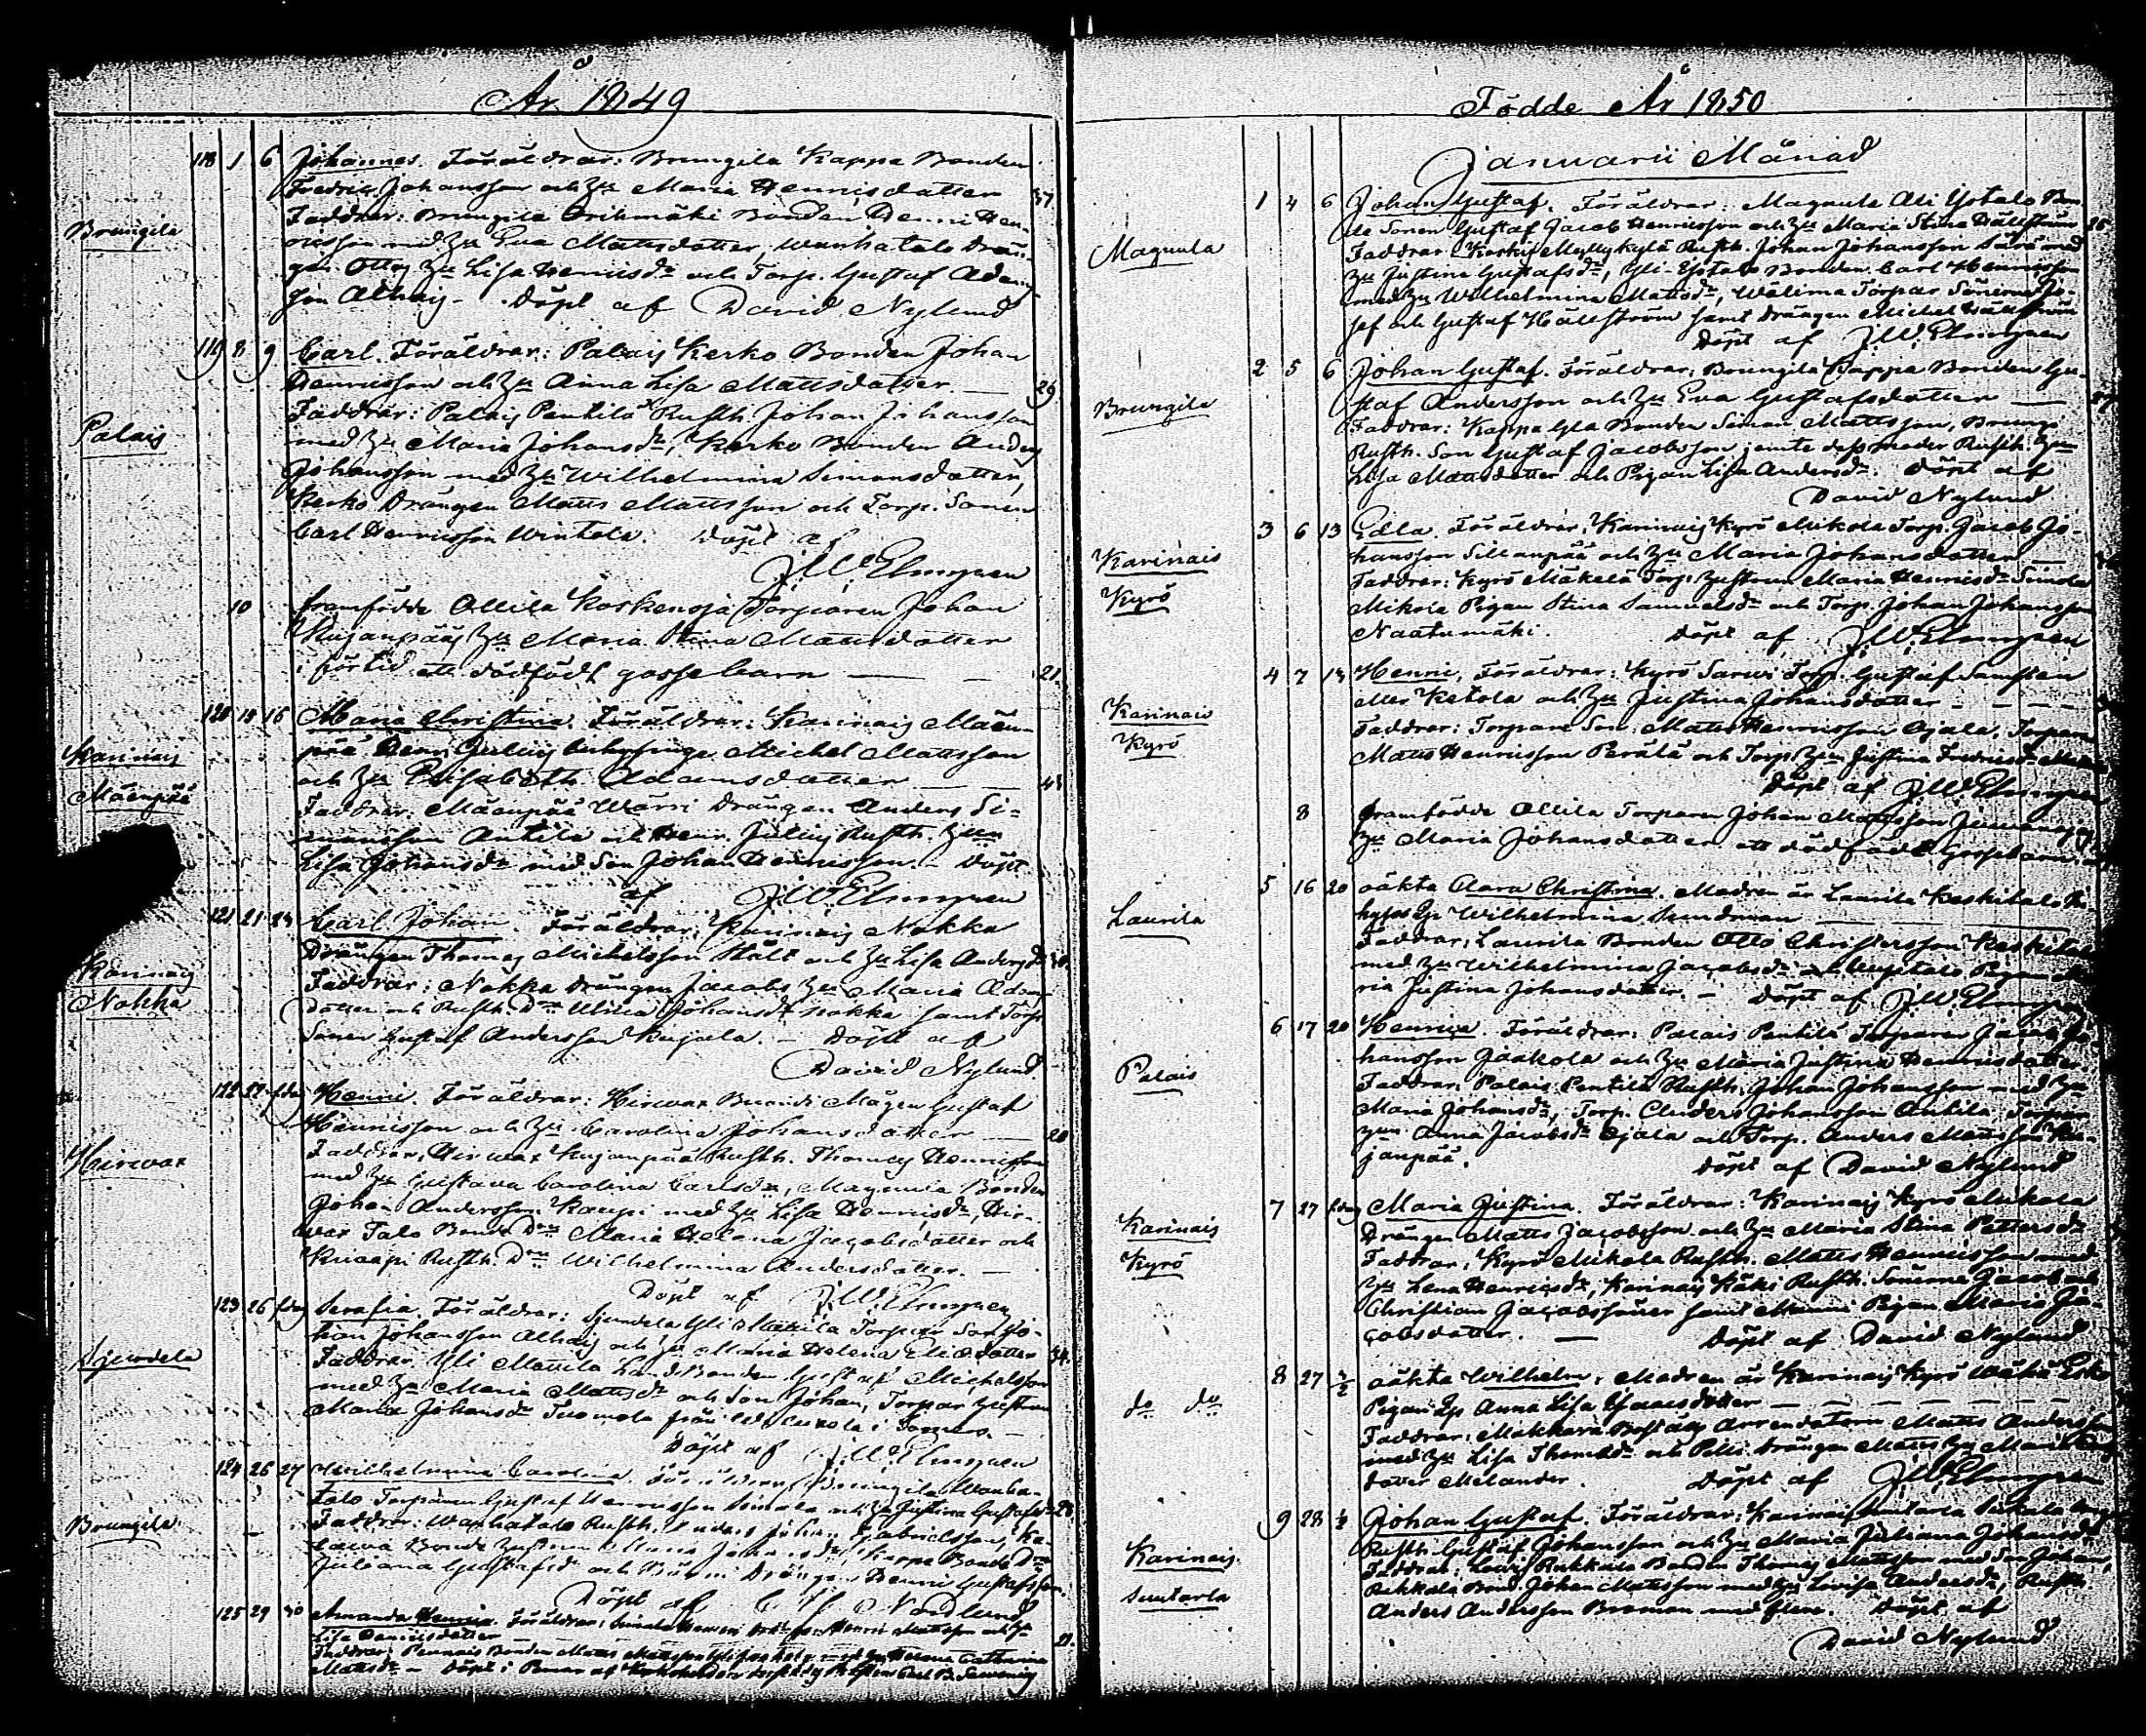 År 1849
118 1 6 Johannes. Föräldrar: Brungila Kappa Bonden
Fredric Johansson och Hu Maria Henricsdatter 37
Brungila
Faddrar: Brungila Orihmäki Bonden Henric Hen-
ricsson med Hu Eva Mattsdatter, Wanhatalo Drän-
gen Otto Hu Lisa Henricsdr och Torp. Gustaf Adams-
son Alhais - Döpt af David Nylund
119 8 9 Carl. Föräldrar: Palais Kerko Bonden Johan
Henricsson och Hu Anna Lisa Mattsdatter 29
Palais
Faddrar: Palais Pentilä Rusth. Johan Johansson
med Hu Maria Johansdr, Kerko Bonden Anders
Johansson med Hu Wilhelmina Simonsdatter,
Kerko Drängen Matts Mattsson och Torp. Sonen
Carl Henricsson Wintola. Döpt af
J.W. Elmgren
10 framfödde Allila Koskenoja Torparen Johan
Kujanpääs Hu Maria Stina Mattsdatter
i förtid ett dödfödt gossebarn 21.
120 15 16 Maria Christina. Föräldrar: Karinais Mäen-
pää Inhysinge Michel Mattsson
och Hu Elisabeth Adamsdatter
Karinais
Mäenpää
Faddrar: Mäenpää Wärri Drängen Anders Si-
monsson Antila och Rusth. Hun
Lisa Johansdr med Son Johan Henricsson. - Döpt
af J.W. Elmgren
121 21 Carl Johan. Föräldrar: Karinais Nokka
Drängen Thomas Michelsson Stält och Hu Lisa Andersdr
Karinais
Nokka
Faddrar: Nokka Drängen Jacobs Hu Maria Adams-
datter och Rusth. Dn Ulrica Johansdr Nokka samt Torp.
Sonen Gustaf Andersson Kujala. - Döpt af
David Nylund.
122 27 f.dag Henric. Föräldrar: Hirwax Bonde Mågen Gustaf
Henricsson och Hu Carolina Johansdatter 20
Hirwax
Faddrar: Hirwax Kujanpää Rusth. Thomas Henricsson
med Hu Gustava Carolina Carlsdr, Magnula Bonden
Johan Andersson Kauppi med Hu Lisa Henricsdr, Hir-
wax Talo Bonde Dn Maria Helena Jacobsdatter och
Knaapi Rusth. Dn Wilhelmina Andersdatter. -
Döpt af J.W. Elmgren
123 26 f.dag Serafia. Föräldrar: Sjundela Yli Mattila Torpar Son Jo-
han Johansson Alhais och Hu Maria Helena Eliaedatter 34.
Sjundela
Faddrar: Yli Mattila Landbonden Gustaf Michelsson
med Hu Maria Mattsdr och Son Johan, Torpar hustrun
Maria Johansdr Tuomola från i Somero. -
Döpt af J.W. Elmgren
124 26 27 Wilhelmina Carolina. Föräldrar: Brungila Wanha-
talo Torparen Gustaf Henricsson Simola och Hu Justina Gustafsdr 28.
Brungila
Faddrar: Wanhatalo Rusth. Anders Johan Gabrielsson,
Bonde hustrun Maria Johansdr, Kappa Bonde Dn
Juliana Gustafsdr och Drängen Henric Gustafsson.
Döpt af Nordlund
125 29 30 Amanda Henrica. Föräldrar: Henric Mattsson och Hu
Lisa Danielsdatter 21.
Faddrar: Bonden Matts Mattsson med Hu Catharina
Mattsdr - Döpt i af

Födde År 1850
Januarii Månad
1 4 6 Johan Gustaf. Föräldrar: Magnula Ali Yotalo Bon-
de Sonen Gustaf Jacob Henricsson och Hu Maria Stina Hällström 25
Magnula
Faddrar: Koskis Myllykylä Rusth. Johan Johansson med
Hu Justina Gustafsdr, Yli-Yotalo Bonden Carl Henricsson
med Hu Wilhelmina Mattsdr, Wälima Torpar Sönerne Jo-
sef och Gustaf Hällström samt Drängen Michel Hällström
Döpt af J.W. Elmgren
2 5 6 Johan Gustaf. Föräldrar: Brungila Pappa Bonden Gu-
staf Andersson och Hu Eva Gustafsdatter 27
Brungila
Faddrar: Kappa Yla Bonden Simon Mattsson,
Rusth. Son Gustaf Jacobsson jemte dess moder Rusth. Hun
Lisa Mattsdatter och Pigan Lisa Andersdr. Döpt af
David Nylund
3 6 13 Edla. Föräldrar: Karinais Kyrö Mikola Torp. Jacob Jo-
hansson Sillanpää och Hu Maria Johansdatter
Karinais
Kyrö
Faddrar: Kyrö Mäkelä Torp. hustrun Maria Henricsdr Simola
Mikola Pigan Stina Samuelsdr och Torp. Johan Johansson
Naatumäki. Döpt af J.W. Elmgren
4 7 13 Henric. Föräldrar: Kyrö Sarwi Torp. Gustaf Samsten
eller Ketola och Hu Justina Johansdatter
Karinais
Kyrö
Faddrar: Torpare Son Matts Henricsson Ojala, Torparen
Matts Henricsson Perälä och Torp. Hun Justina Fredricsdr
Döpt af J.W. Elmgren
8 framfödde Allila Torparen Johan Mattsson
Hu Maria Johansdatter ett dödfödt Gossebarn
5 16 20 oäkta Clara Christina. Modren är Laurila Keskitalo In-
hyses Qp Wilhelmina Sundman
Laurila
Faddrar: Laurila Bonden Otto Christersson Keskitalo
med Hu Wilhelmina Jacobsdr och Uusitalo Pigan Ma-
ria Justina Johansdatter. - Döpt af J.W. Elmgren
6 17 20 Henrica. Föräldrar: Palais Pentilä Torparen Jacob Jo-
hansson Jaakola och Hu Maria Justina Henricsdatter.
Palais
Faddrar: Palais Pentilä Rusth. Johan Johansson med Hu
Maria Johansdr, Torp. Anders Johansson Antila, Torpare
Hun Anna Jacobsdr Ojala och Torp. Anders Mattsson Ku-
janpää. Döpt af David Nylund
7 27 f.dag Maria Justina. Föräldrar: Karinais Kyrö Mikola
Drängen Matts Jacobsson och Hu Maria Stina Pettersdr
Karinais
Kyrö
Faddrar: Kyrö Mikola Rusth. Matts Henricsson med
Hu Lena Henricsdr, Karinais Käki Rusth. Sönerne Jacob och
Christian Jacobssöner samt Manni Pigan Maria Ja-
cobsdatter. - Döpt af David Nylund
8 27 ½ oäkta Wilhelm. Modren är Karinais Kyrö Wähä Esko
Pigan Qp Anna Lisa Isacsdotter
do do
Faddrar: Makkara Boställs Arrendatorn Matts Andersson
med Hu Lisa Thomasdr och Drängen Matts Hu Maria
Melander. Döpt af J.W. Elmgren
9 28 ½ Johan Gustaf. Föräldrar: Karinais Suutarla
Rusth. Gustaf Johansson och Hu Maria Juliana Johansdr
Karinais.
Suutarla
Faddrar: Rukkala Bonden Thomas Mattsson med Son Johan,
Rukkala Bond. Johan Mattsson med Hu Lovisa Andersdr, Rusth.
Anders Andersson Broman med flere. Döpt af
David Nylund